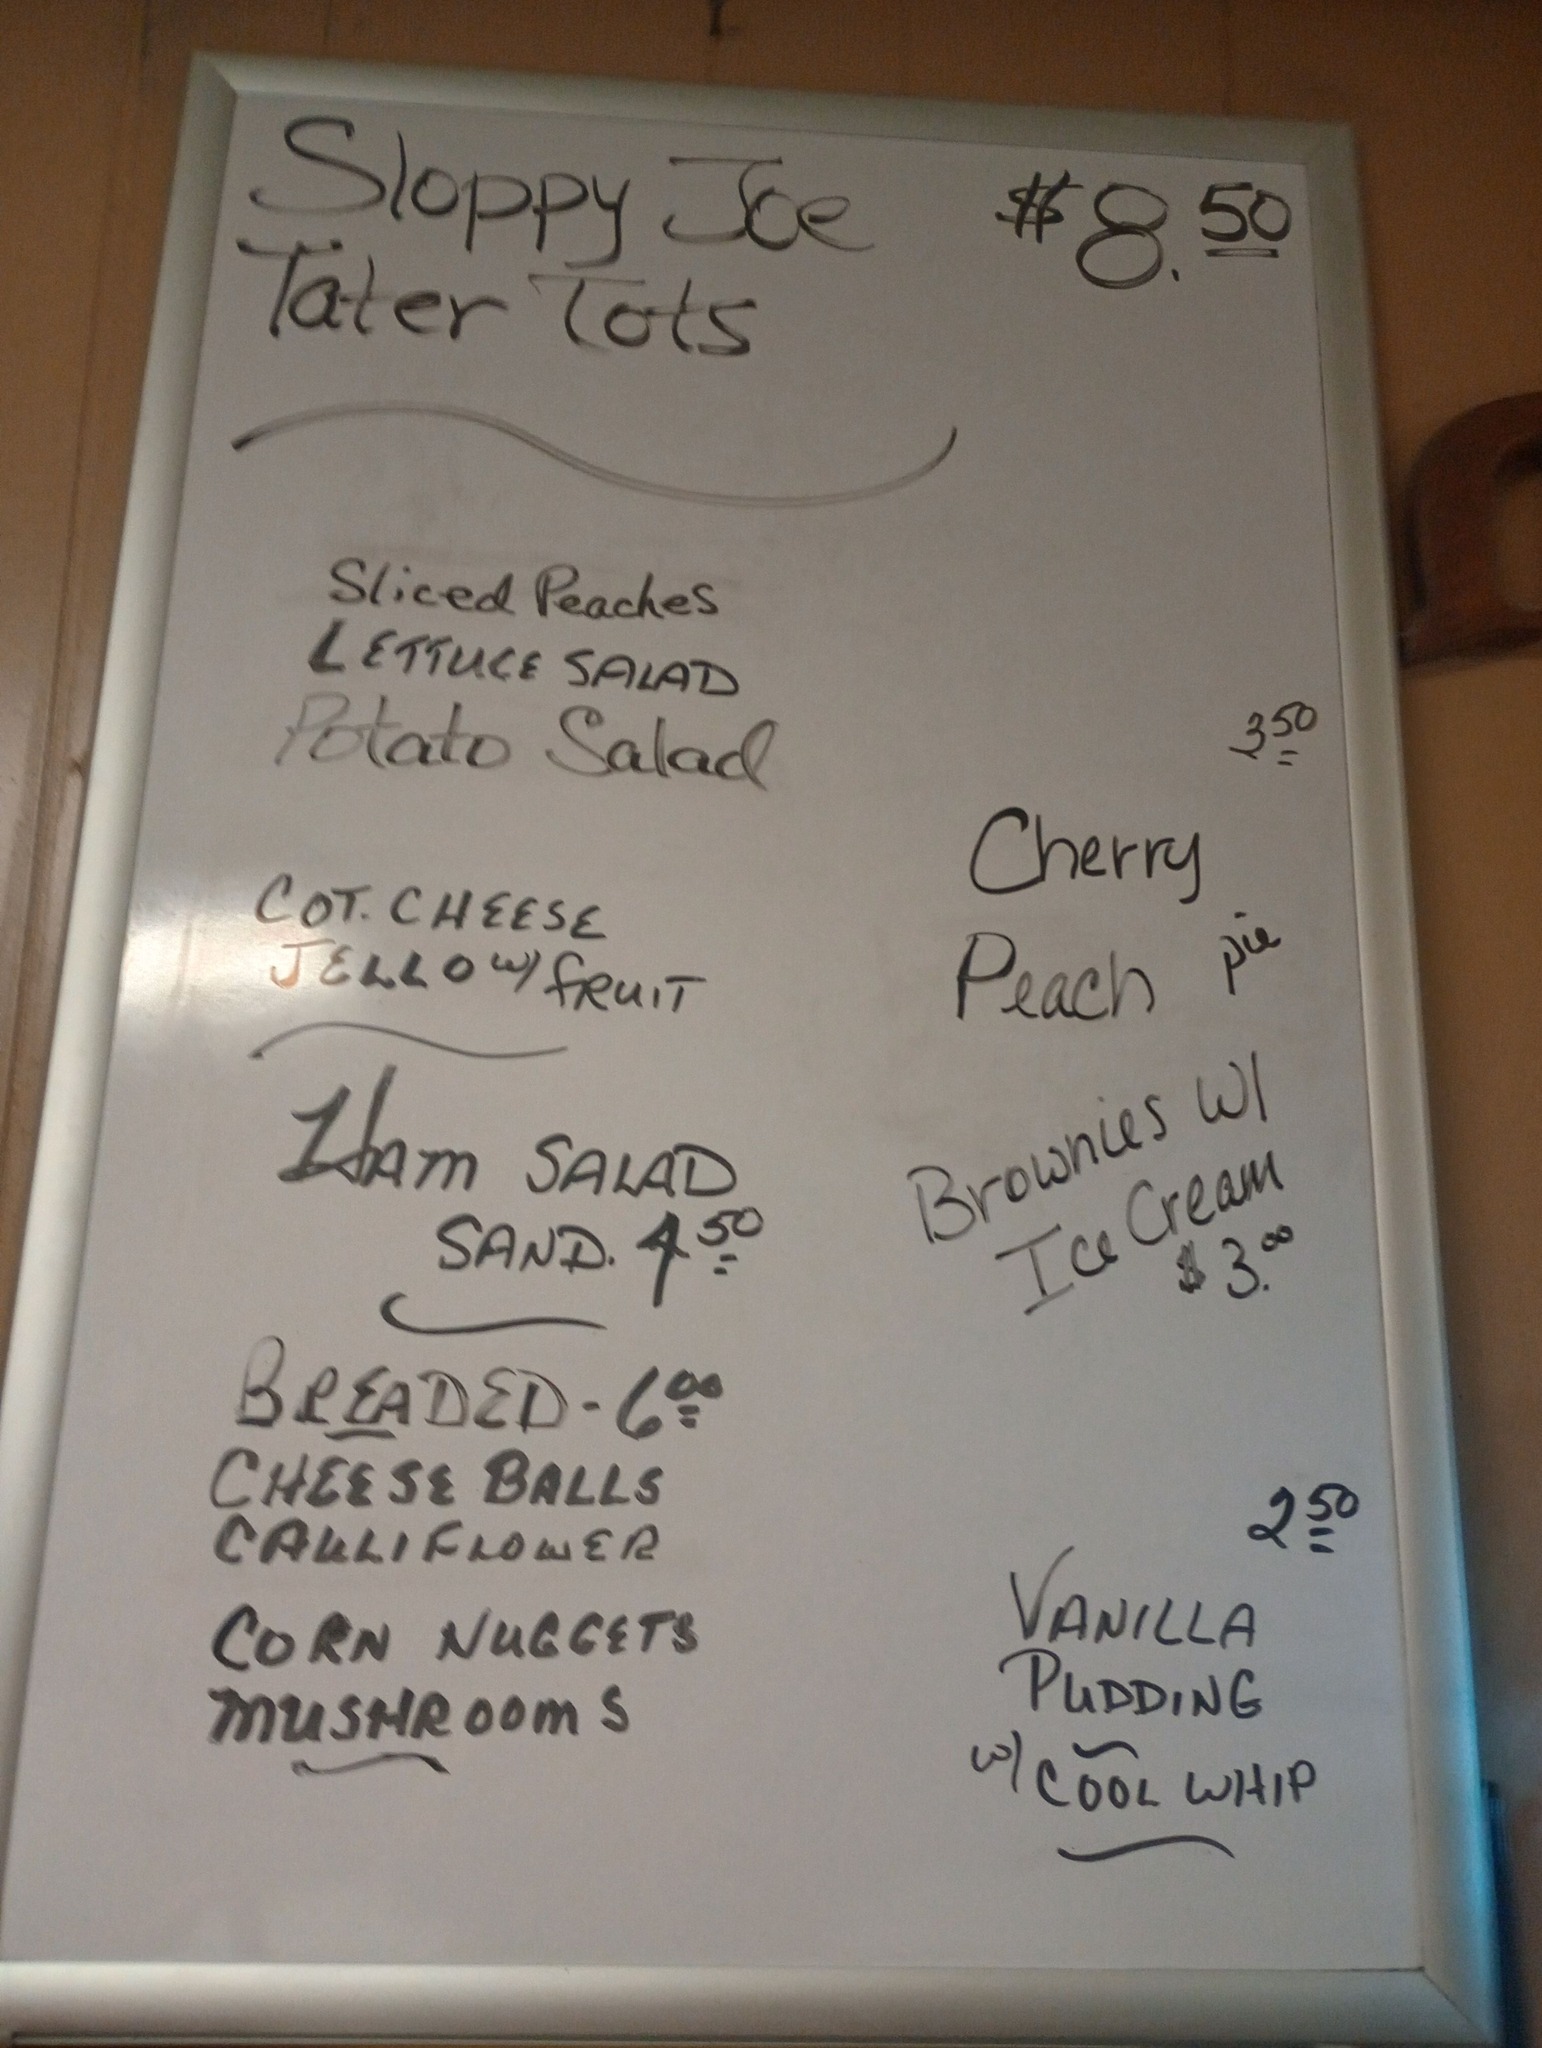 Sloppy Joe $8.50
Tater Tots
Sliced Peaches
LETTUCE SALAD
Potato Salad
COT. CHEESE
JELLO w/ fRUIT
Ham SALAD
SAND. 4 50
BREADED - 6 00
CHEESE BALLS
CAULIFLOWER
CORN NUGGETS
MUSHROOMS
3 50
Cherry
Peach pie
Brownies w/
Ice Cream
$3.00
2 50
VANILLA
PUDDING
w/ COOL WHIP